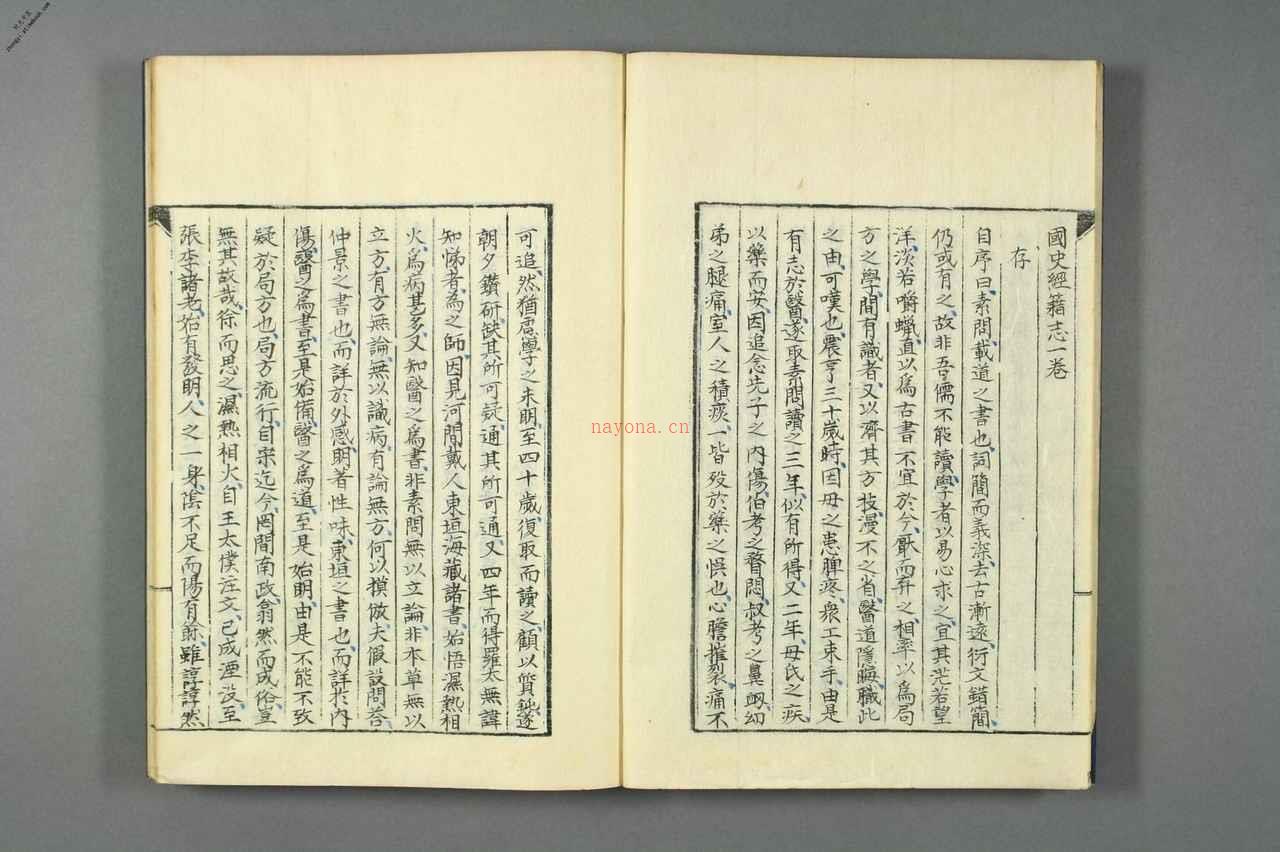 國史經籍志一卷
存
自序曰素問載道之書也詞簡而義深去古漸遠衍文錯簡
仍或有之故非吾儒不能讀學者以易心求之宜其茫若望
洋淡若嚼蠟直以爲古書不宜於今厭而弃之相率以爲局
方之學間有識者又以濟其方技漫不之省醫道隱晦職此
之由可嘆也震亨三十歲時因母之患脾疼衆工束手由是
有志於醫遂取素問讀之三年似有所得又二年母氏之疾
以藥而安因追念先子之內傷伯考之瞀悶叔考之鼻衂幼
弟之腿痛室人之積痰一皆歿於藥之悞也心膽摧裂痛不
可追然猶慮學之未明至四十歲復取而讀之顧以質鈍遂
朝夕鑽研缺其所可疑通其所可通又四年而得羅太無諱
知悌者為之師因見河間戴人東垣海藏諸書始悟濕熱相
火爲病甚多又知醫之爲書非素問無以立論非本草無以
立方有方無論無以識病有論無方何以摸倣夫假設問荅
仲景之書也而詳於外感明著性味東垣之書也而詳於內
傷醫之爲書至是始備醫之爲道至是始明由是不能不致
疑於局方也局方流行自宋迄今罔間南政翕然而成俗豈
無其故哉徐而思之濕熱相火自王太僕注文已成湮没至
張李諸老始有發明人之一身陰不足而陽有餘雖諄諄然
nayona.cn